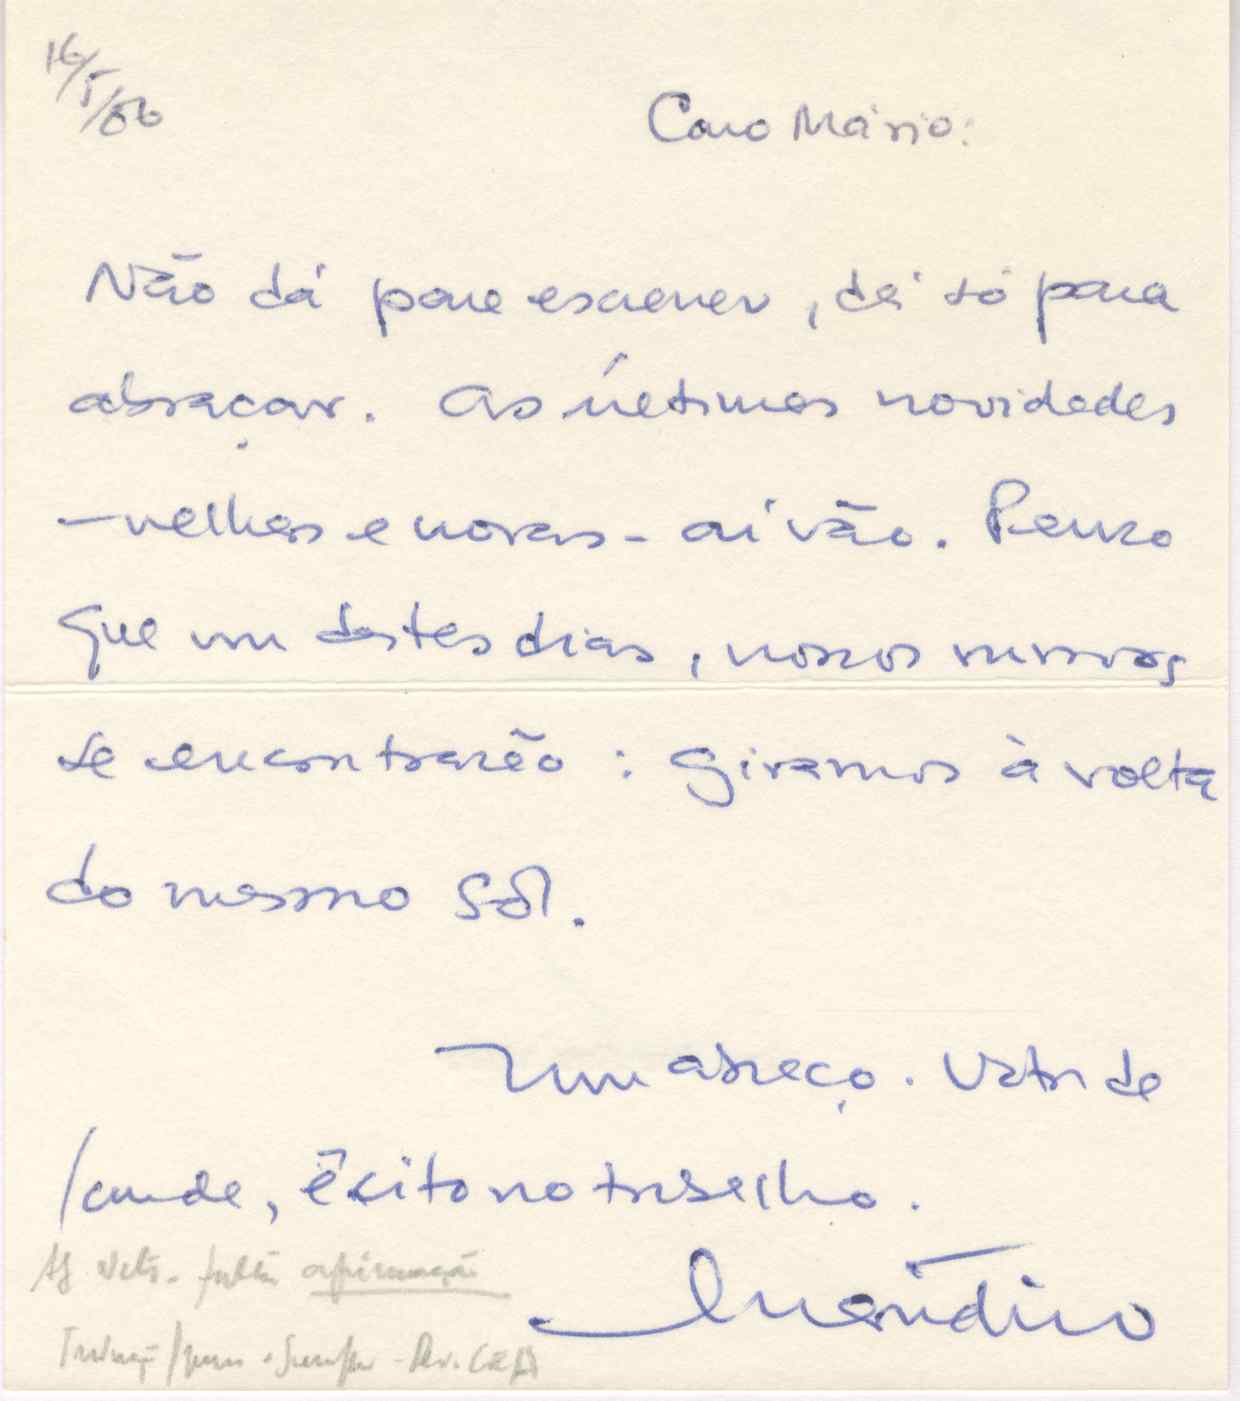 16/5/86
Caro Mário:
Não dá para escrever, dá só para
abraçar. As últimas novidades
— velhas e novas — aí vão. Penso
que um destes dias, nossos rumos
se encontrarão: Giramos à volta
do mesmo Sol.
Um abraço. Votos de
saude, êxito no trabalho.
afirmação
Luandino